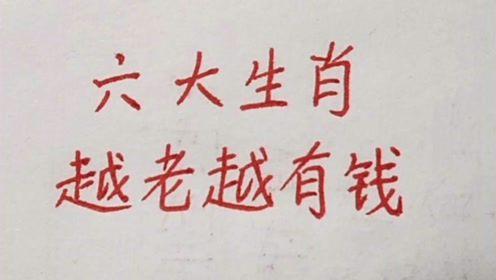 六大生肖
越老越有钱